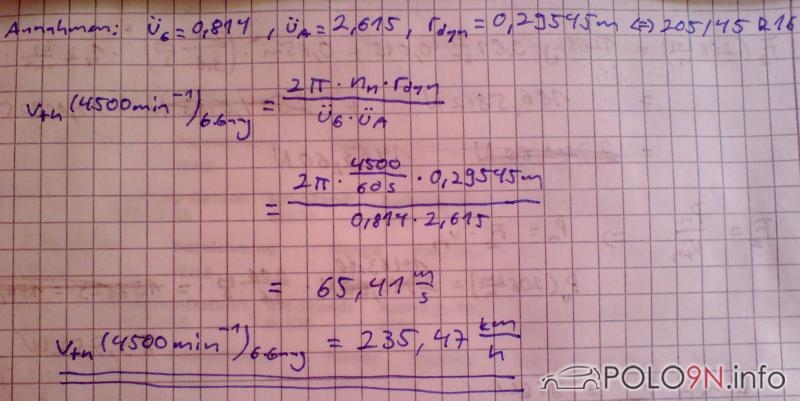 Annahmen: Ü₆ = 0,814 , Ü_A = 2,615 , r_dyn = 0,29545m ⇔ 205/45 R16
v_th (4500min⁻¹)_6.Gang = (2π · n_n · r_dyn) / (Ü₆ · Ü_A)
= (2π · 4500/60s · 0,29545m) / (0,814 · 2,615)
= 65,41 m/s
v_th (4500min⁻¹)_6.Gang = 235,47 km/h
POLO9N.info